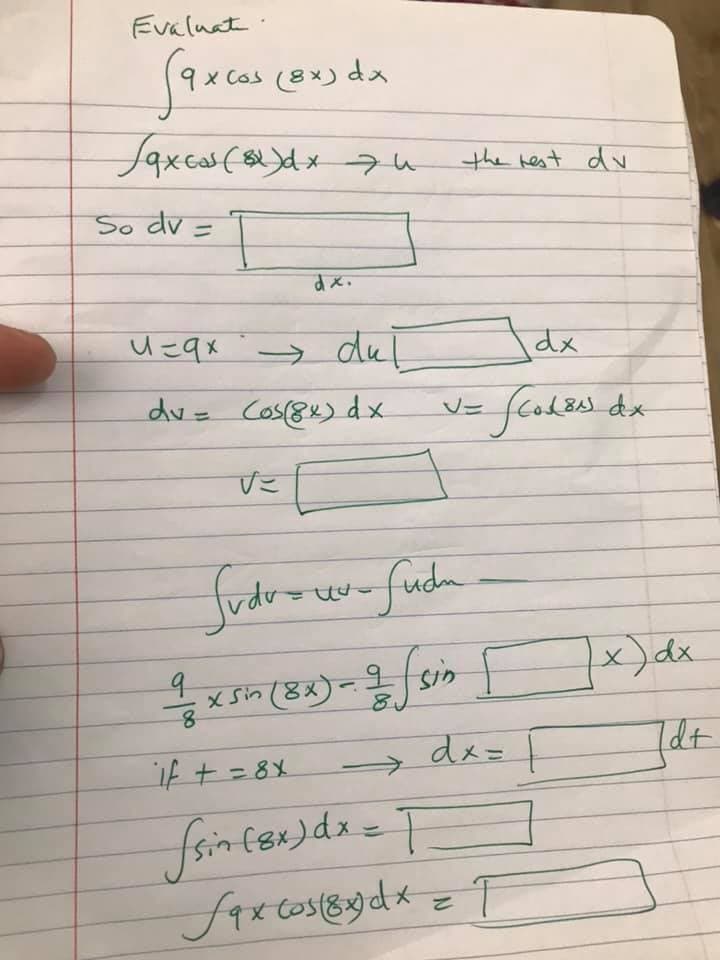 Evaluate.
∫9x cos (8x) dx
∫9x cos(8x)dx → u the rest dv
So dv =
dx.
u=9x → du dx
dv = cos(8x) dx v= ∫cos(8x) dx
v=
∫vdv = uv - ∫udu
9/8 x sin (8x) - 9/8 ∫ sin x) dx
if t = 8x → dx = dt
∫sin(8x) dx =
∫9x cos(8x)dx =